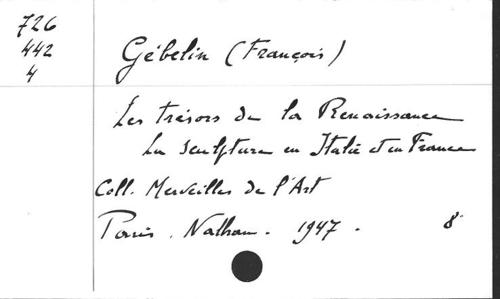 726
442
4
Gébelin (François)
Les trésors de la Renaissance
La sculpture en Italie et en France
Coll. Merveilles de l'Art
Paris. Nathan. 1947. 8°